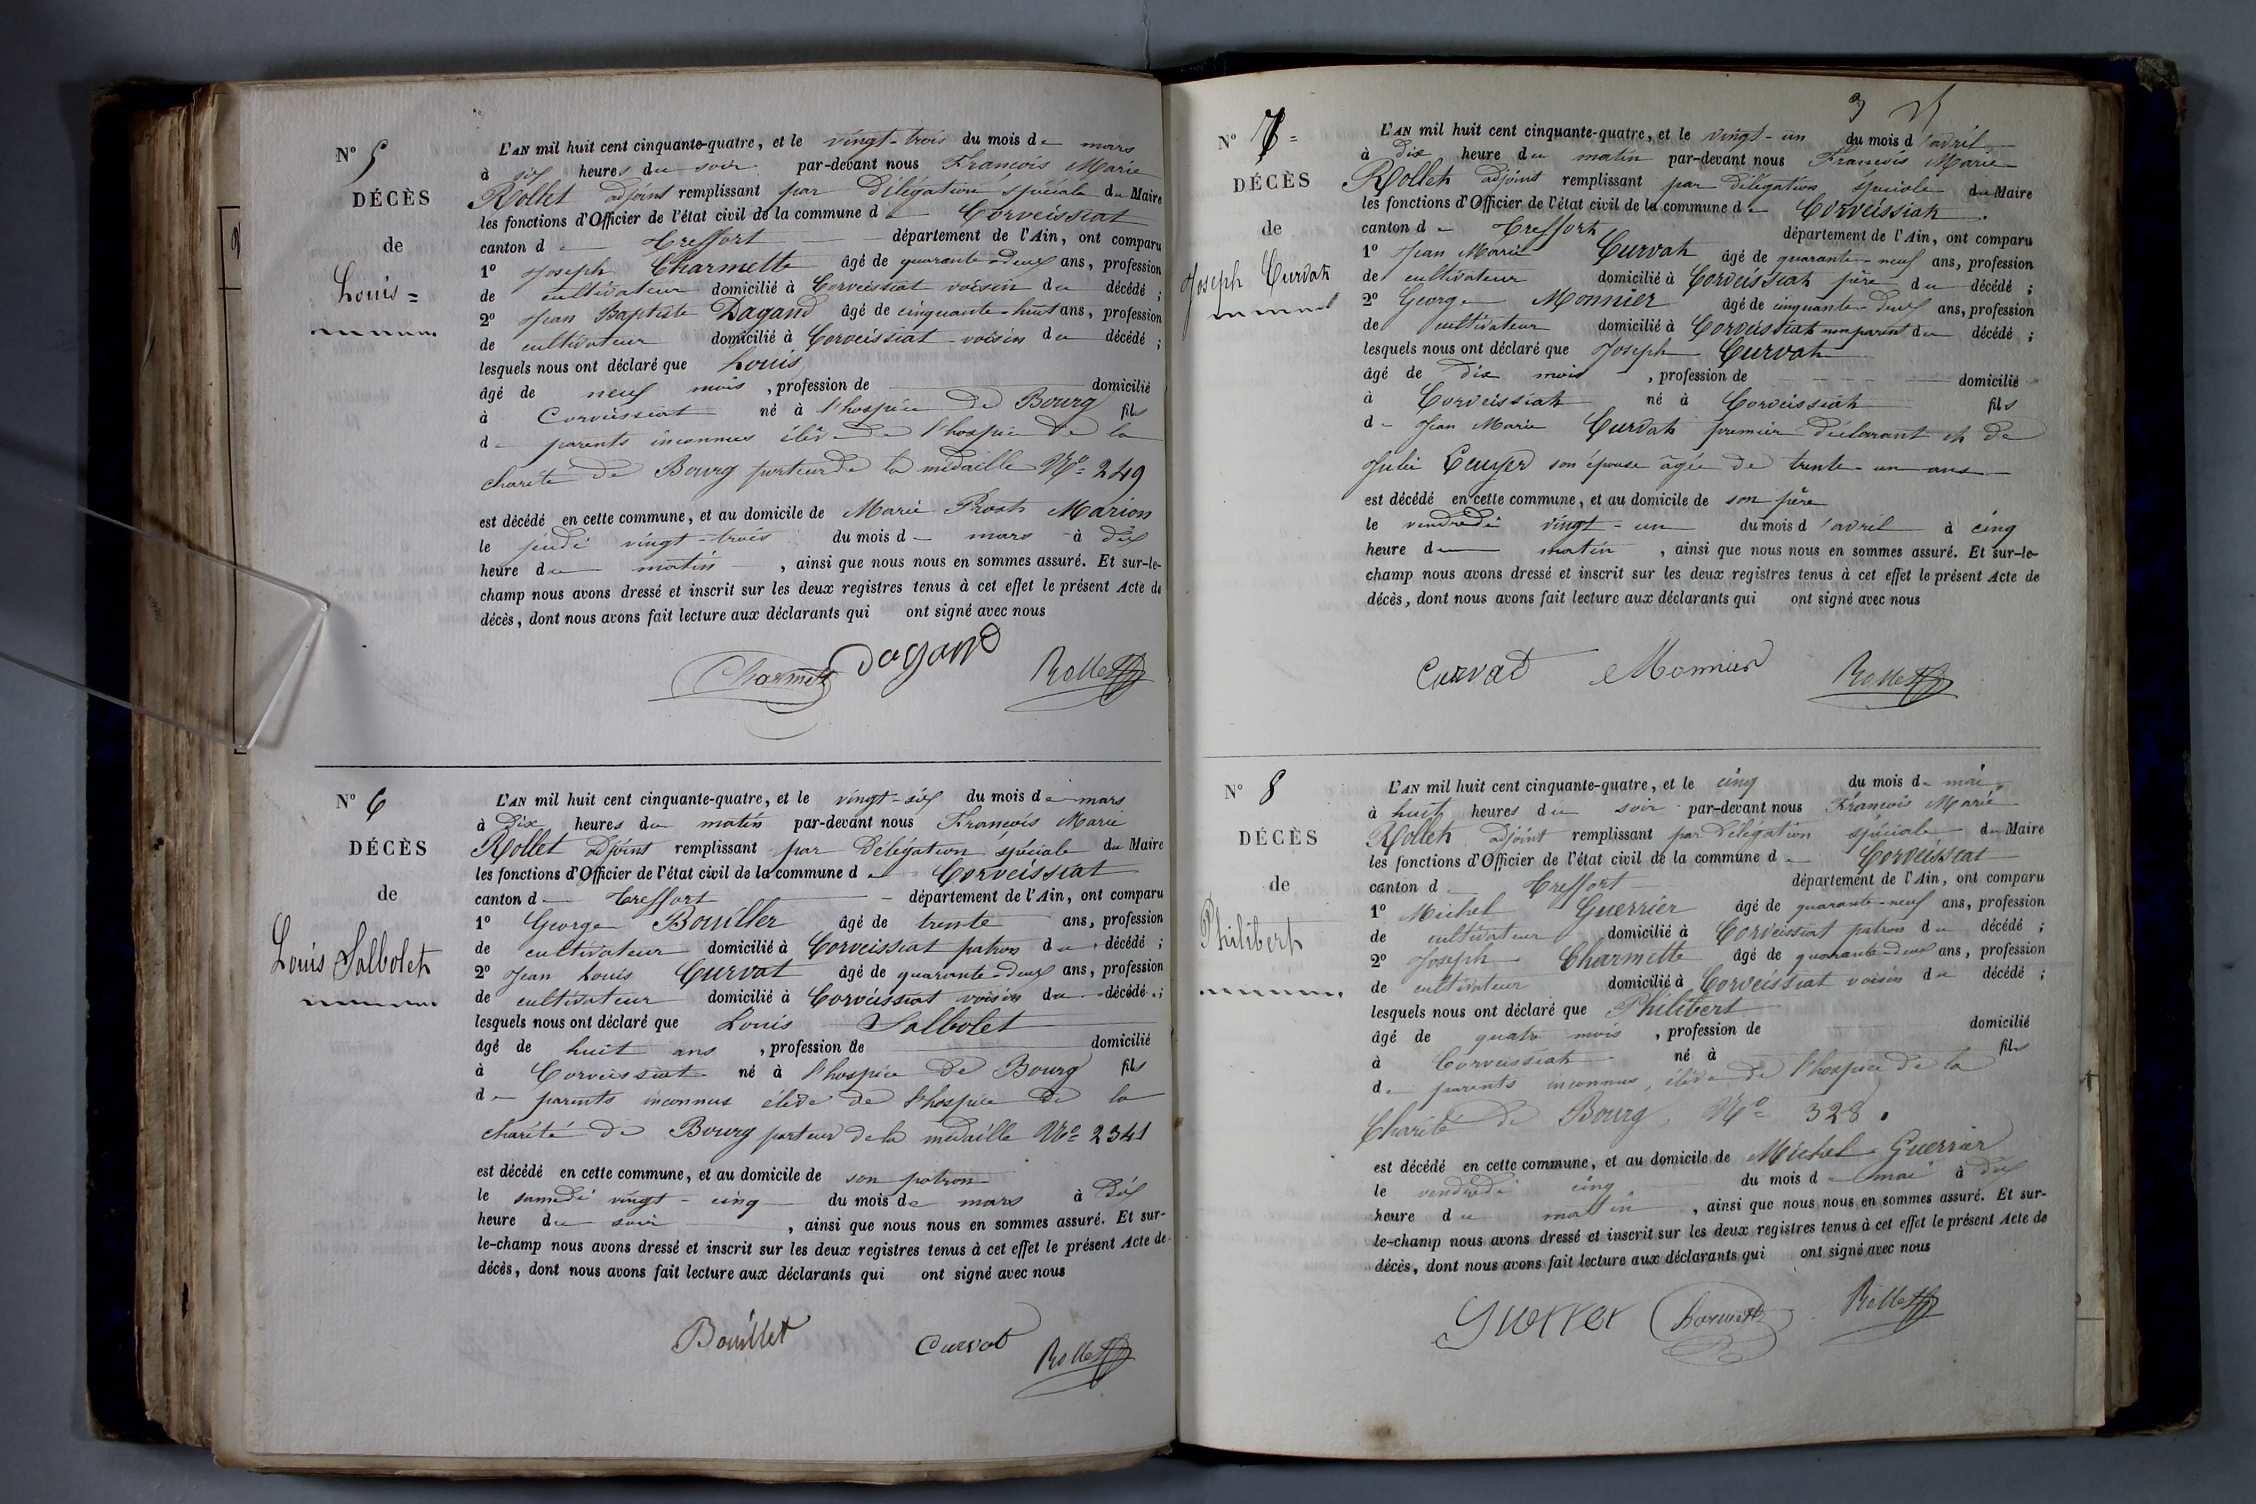 N° 5
DÉCÈS
de
Louis =
L'AN mil huit cent cinquante-quatre, et le vingt-trois du mois de mars
à six heures du soir par-devant nous François Marie
Rollet adjoint remplissant par délégation spéciale du Maire
les fonctions d'Officier de l'état civil de la commune de Corveissiat
canton de Treffort département de l'Ain, ont comparu
1° Joseph Charmette âgé de quarante-deux ans, profession
de cultivateur domicilié à Corveissiat voisin du décédé ;
2° Jean Baptiste Dagand âgé de cinquante-huit ans, profession
de cultivateur domicilié à Corveissiat voisin du décédé ;
lesquels nous ont déclaré que Louis
âgé de neuf mois, profession de domicilié
à Corveissiat né à l'hospice de Bourg fils
de parents inconnus élève de l'hospice de la
charité de Bourg porteur de la médaille N° 249
est décédé en cette commune, et au domicile de Marie Prost Marion
le jeudi vingt-trois du mois de mars à dix
heure du matin, ainsi que nous nous en sommes assuré. Et sur-le-
champ nous avons dressé et inscrit sur les deux registres tenus à cet effet le présent Acte de
décès, dont nous avons fait lecture aux déclarants qui ont signé avec nous
Charmette Dagand Rollet
N° 6
DÉCÈS
de
Louis Salbolet
L'AN mil huit cent cinquante-quatre, et le vingt-six du mois de mars
à dix heures du matin par-devant nous François Marie
Rollet adjoint remplissant par délégation spéciale du Maire
les fonctions d'Officier de l'état civil de la commune de Corveissiat
canton de Treffort département de l'Ain, ont comparu
1° George Bouiller âgé de trente ans, profession
de cultivateur domicilié à Corveissiat patron du décédé ;
2° Jean Louis Curvat âgé de quarante deux ans, profession
de cultivateur domicilié à Corveissiat voisin du décédé ;
lesquels nous ont déclaré que Louis Salbolet
âgé de huit ans, profession de domicilié
à Corveissiat né à l'hospice de Bourg fils
de parents inconnus élève de l'hospice de la
charité de Bourg porteur de la médaille N° 2341
est décédé en cette commune, et au domicile de son patron
le samedi vingt-cinq du mois de mars à dix
heure du soir, ainsi que nous nous en sommes assuré. Et sur-
le-champ nous avons dressé et inscrit sur les deux registres tenus à cet effet le présent Acte de
décès, dont nous avons fait lecture aux déclarants qui ont signé avec nous
Bouillet Curvat Rollet
3
N° 7 =
DÉCÈS
de
Joseph Curvat
L'AN mil huit cent cinquante-quatre, et le vingt-un du mois d'avril
à dix heure du matin par-devant nous François Marie
Rollet adjoint remplissant par délégation spéciale du Maire
les fonctions d'Officier de l'état civil de la commune de Corveissiat.
canton de Treffort département de l'Ain, ont comparu
1° Jean Marie Curvat âgé de quarante-neuf ans, profession
de cultivateur domicilié à Corveissiat père du décédé ;
2° George Monnier âgé de cinquante deux ans, profession
de cultivateur domicilié à Corveissiat non parent du décédé ;
lesquels nous ont déclaré que Joseph Curvat
âgé de dix mois, profession de domicilié
à Corveissiat né à Corveissiat fils
de Jean Marie Curvat premier déclarant et de
Julie Ecuyer son épouse âgée de trente-un ans
est décédé en cette commune, et au domicile de son père
le vendredi vingt-un du mois d'avril à cinq
heure du matin, ainsi que nous nous en sommes assuré. Et sur-le-
champ nous avons dressé et inscrit sur les deux registres tenus à cet effet le présent Acte de
décès, dont nous avons fait lecture aux déclarants qui ont signé avec nous
Curvat Monnier Rollet
N° 8
DÉCÈS
de
Philibert
L'AN mil huit cent cinquante-quatre, et le cinq du mois de mai
à huit heures du soir par-devant nous François Marie
Rollet adjoint remplissant par délégation spéciale du Maire
les fonctions d'Officier de l'état civil de la commune de Corveissiat
canton de Treffort département de l'Ain, ont comparu
1° Michel Guerrier âgé de quarante-neuf ans, profession
de cultivateur domicilié à Corveissiat patron du décédé ;
2° Joseph Charmette âgé de quarante-deux ans, profession
de cultivateur domicilié à Corveissiat voisin du décédé ;
lesquels nous ont déclaré que Philibert
âgé de quatre mois, profession de domicilié
à Corveissiat né à fils
de parents inconnus, élève de l'hospice de la
Charité de Bourg, N° 328.
est décédé en cette commune, et au domicile de Michel Guerrier
le vendredi cinq du mois de mai à dix
heure du matin, ainsi que nous nous en sommes assuré. Et sur-
le-champ nous avons dressé et inscrit sur les deux registres tenus à cet effet le présent Acte de
décès, dont nous avons fait lecture aux déclarants qui ont signé avec nous
Guerrer Charmette Rollet